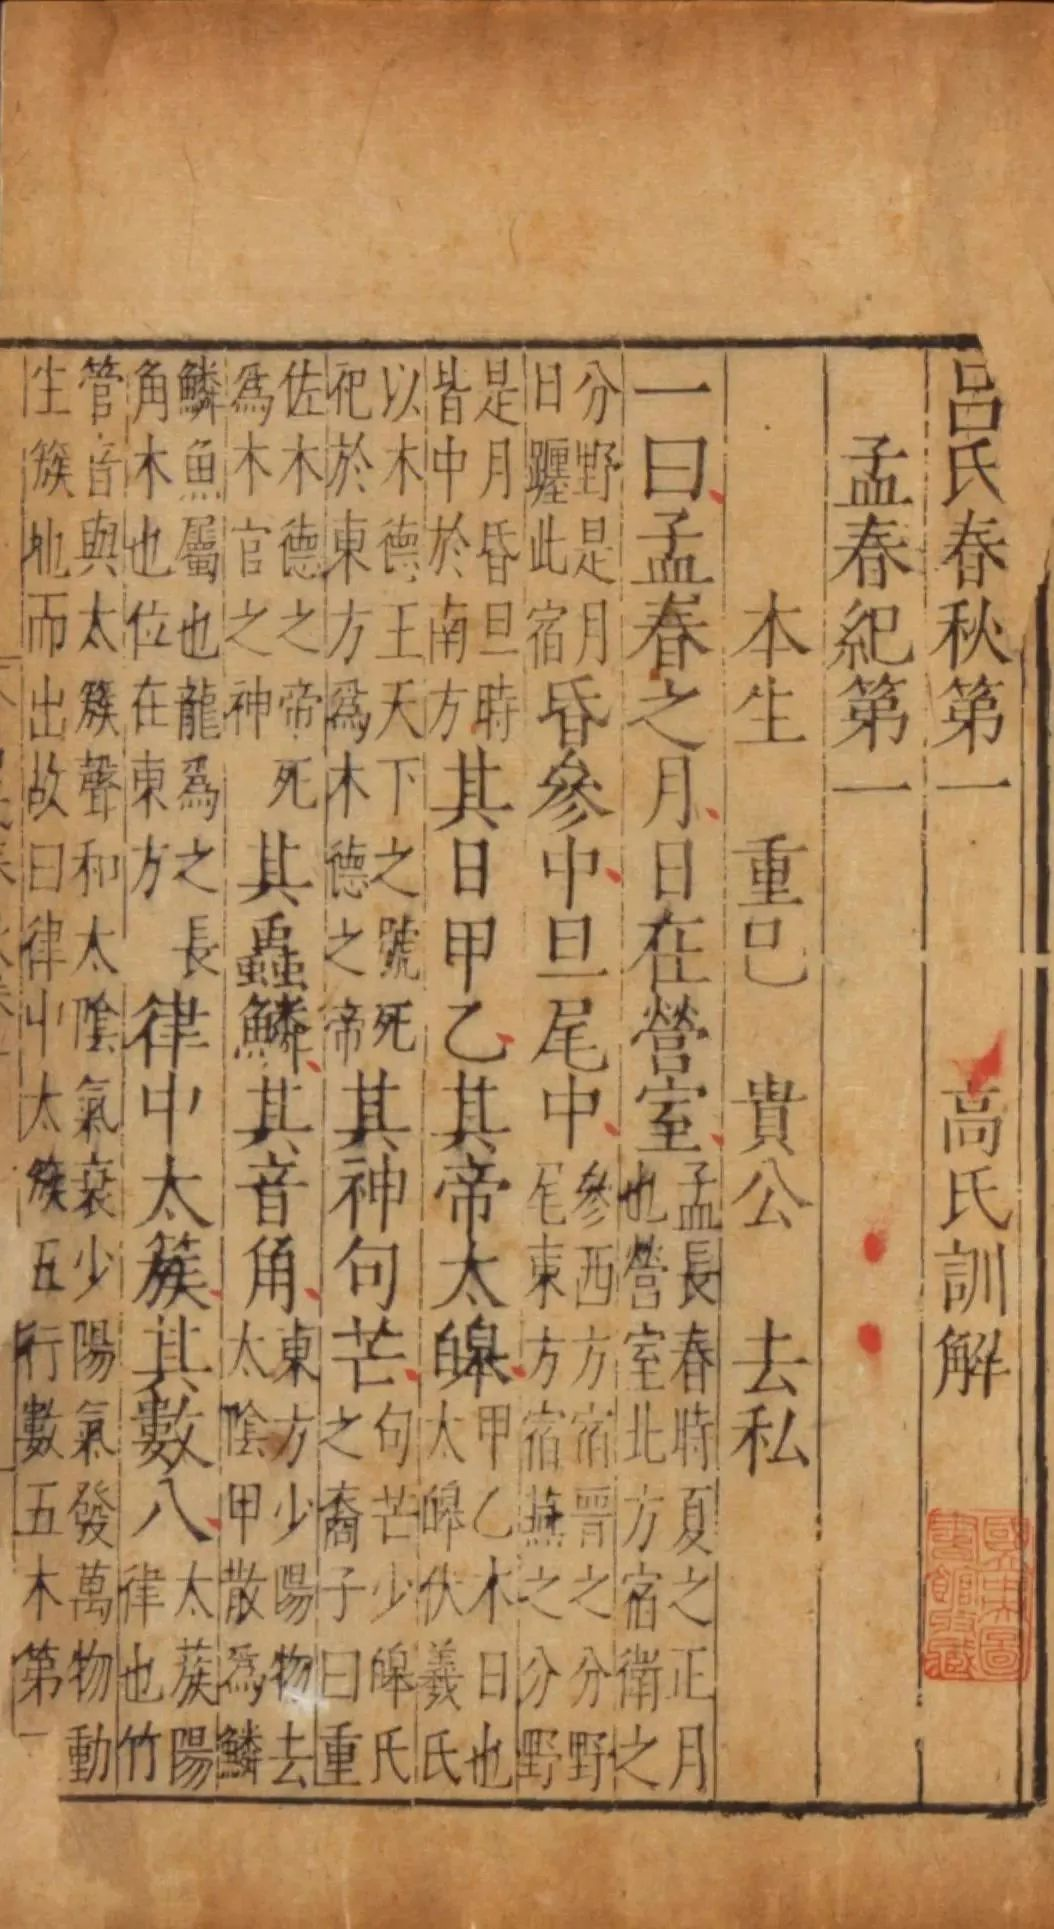 呂氏春秋第一 高氏訓解
孟春紀第一
本生 重己 貴公 去私
一曰孟春之月日在營室孟長春時夏之正月也營室北方宿衛之
分野是月日躔此宿昏參中旦尾中參西方宿晉之分野尾東方宿燕之分野
是月昏旦時皆中於南方其日甲乙其帝太皞甲乙木日也太皞伏羲氏
以木德王天下之號死祀於東方爲木德之帝其神句芒句芒少皞氏之裔子曰重
佐木德之帝死爲木官之神其蟲鱗其音角東方少陽物去太陰甲散爲鱗
鱗魚屬也龍爲之長角木也位在東方律中太簇其數八太蔟陽律也竹
管音與太簇聲和太陰氣衰少陽氣發萬物動生簇地而出故曰律中太簇五行數五木第一